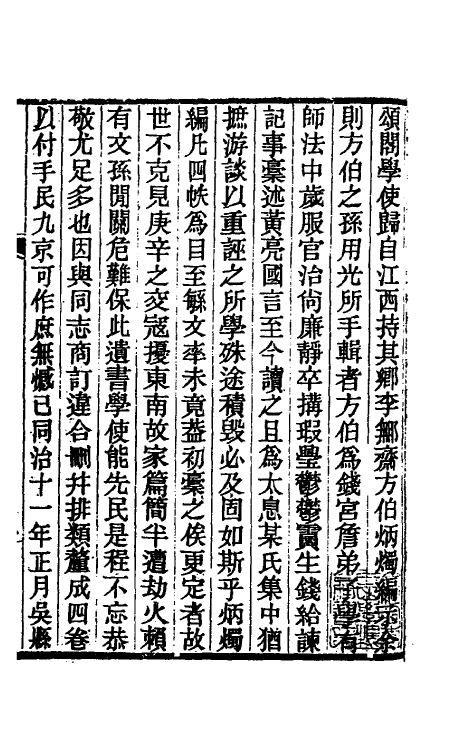 頌閣學使歸自江西持其鄉李鄦齋方伯炳燭編示余
則方伯之孫用光所手輯者方伯為錢宮詹弟子學有
師法中歲服官治尚廉靜卒搆瑕釁鬱鬱賫生錢給諫
記事藁述黃亮國言至今讀之且為太息某氏集中猶
摭游談以重誣之所學殊途積毀必及固如斯乎炳燭
編凡四帙為目至緐文率未竟葢初藁之俟更定者故
世不克見庚辛之交寇擾東南故家篇簡半遭劫火賴
有文孫閒關危難保此遺書學使能先民是程不忘恭
敬尤足多也因與同志商訂違合刪并排類釐成四卷
以付手民九京可作庶無憾已同治十一年正月吳縣